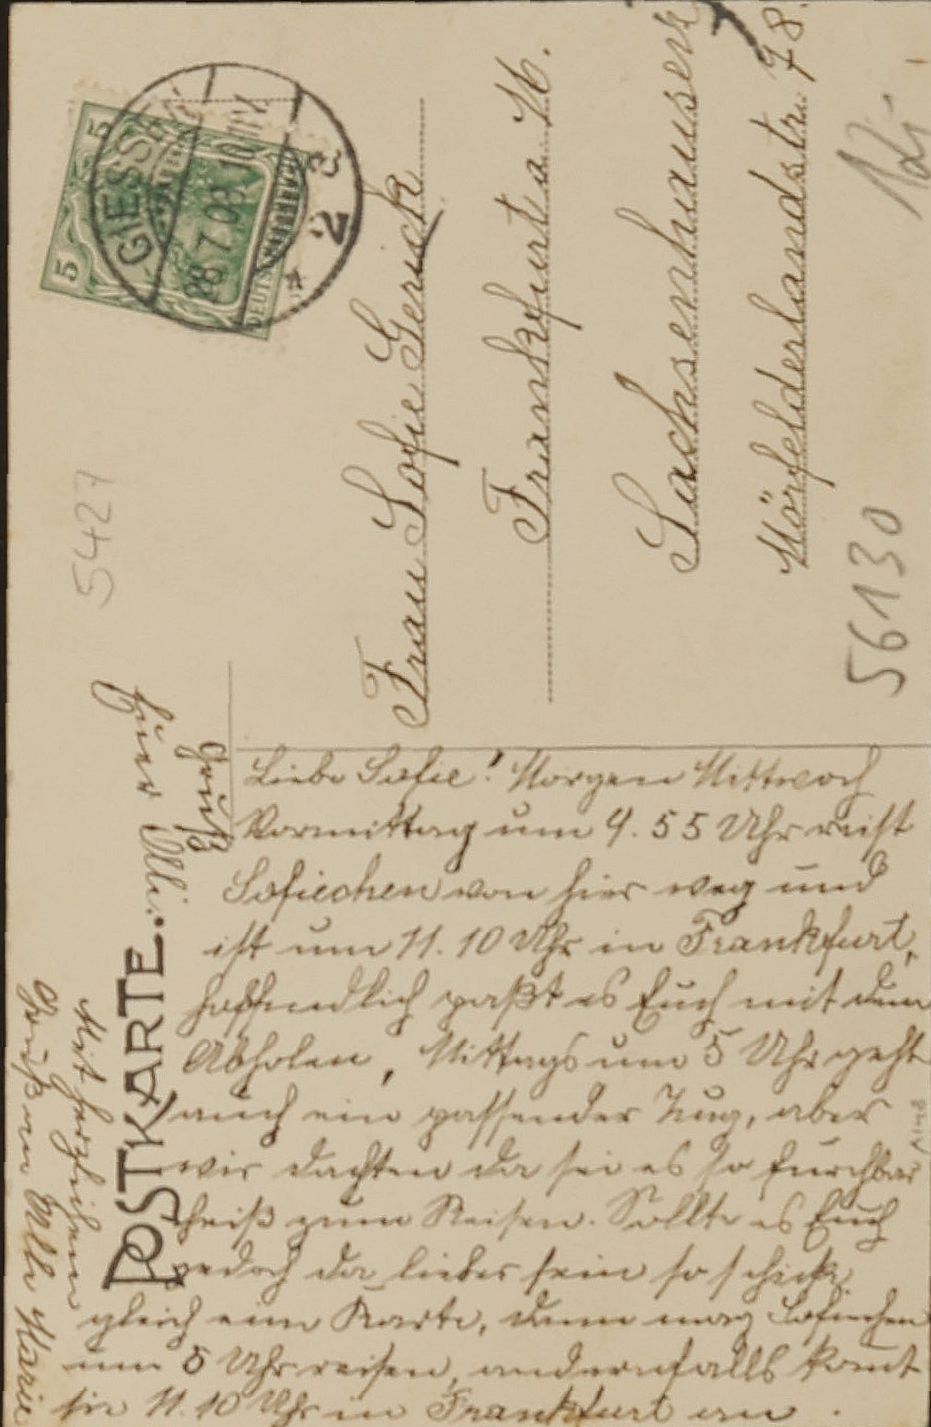 POSTKARTE.
GIESS
28 7 09
* 2
5
5
DEUTS
5427
Frau Sofie Gerich
Frankfurt a. M.
Sachsenhausen
Mörfelderlandstr. 78.
56130
Liebe Sofie! Morgen Mittwoch
Vormittag um 9.55 Uhr reist
Sofiechen von hier weg und
ist um 11.10 Uhr in Frankfurt,
hoffendlich paßt es Euch mit dem
Abholen, Mittags um 5 Uhr geht
auch ein passender Zug, aber
wir dachten da sei es so furchbar
heiß zum Reisen. Sollte es Euch
jedoch da lieber sein so schickt
gleich eine Karte, dann mag Sofiechen
um 5 Uhr reisen, andernfalls komt
sie 11.10 Uhr in Frankfurt an.
Mit herzlichen
Grüßen Alle Marie
Gruß
Euer